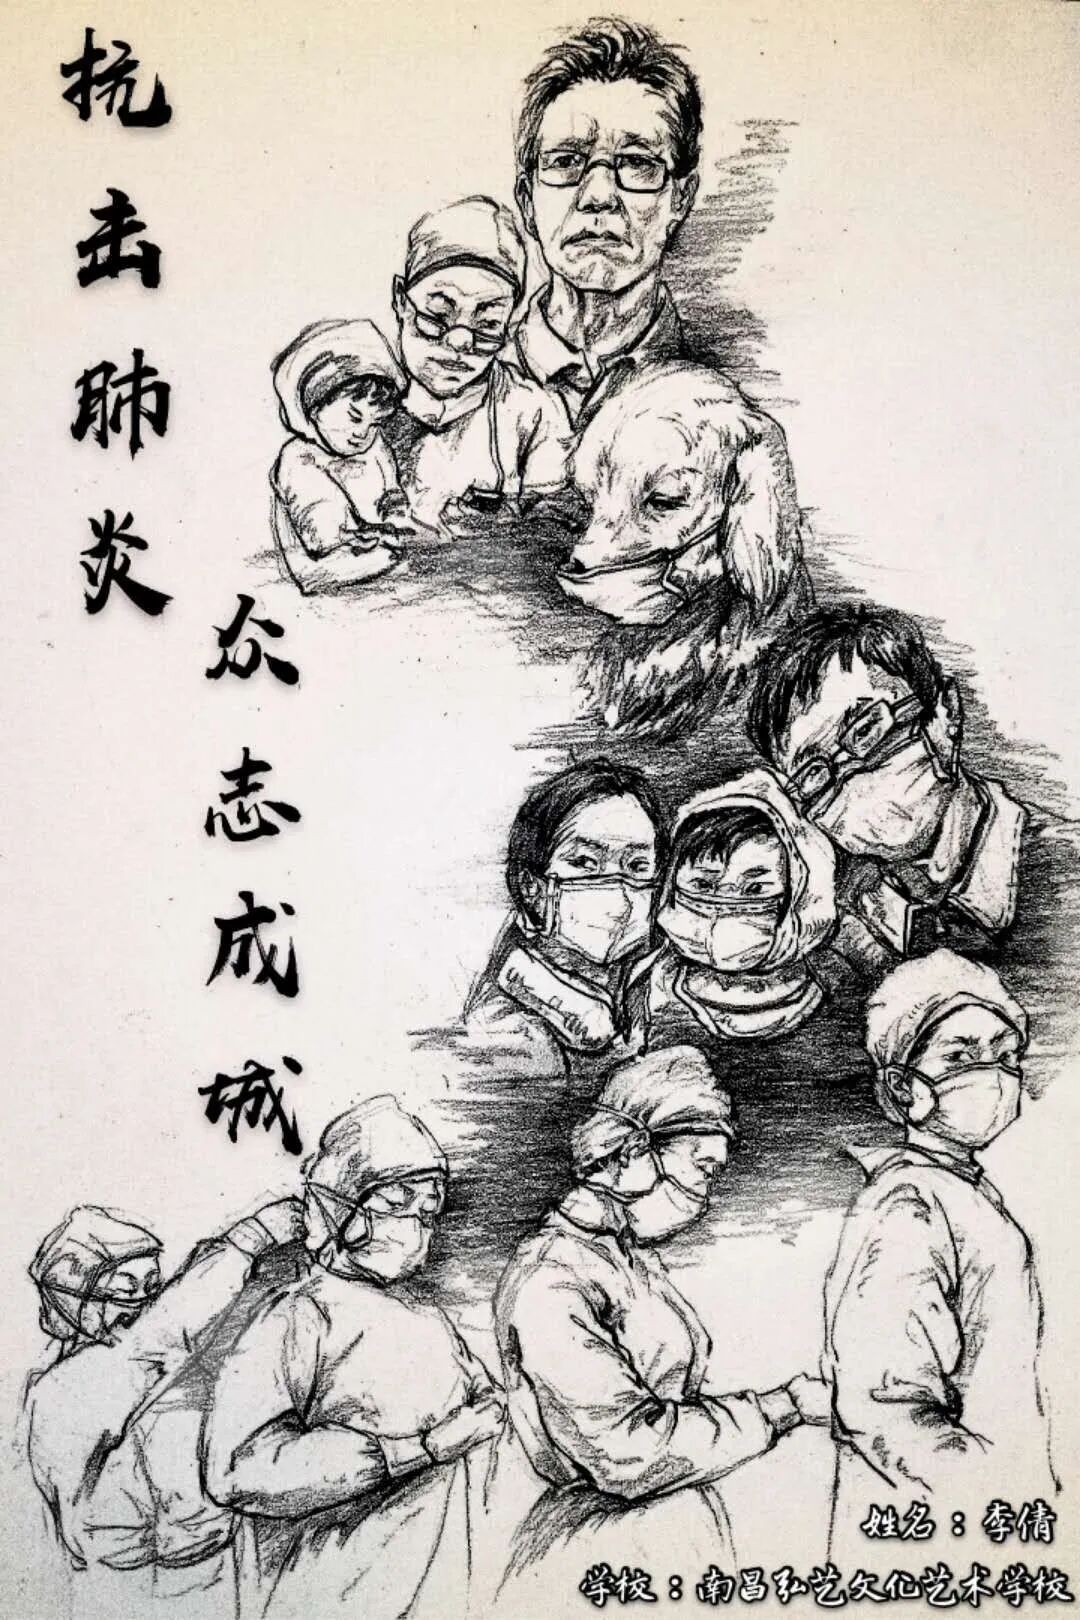 抗击肺炎
众志成城
姓名：李倩
学校：南昌弘艺文化艺术学校